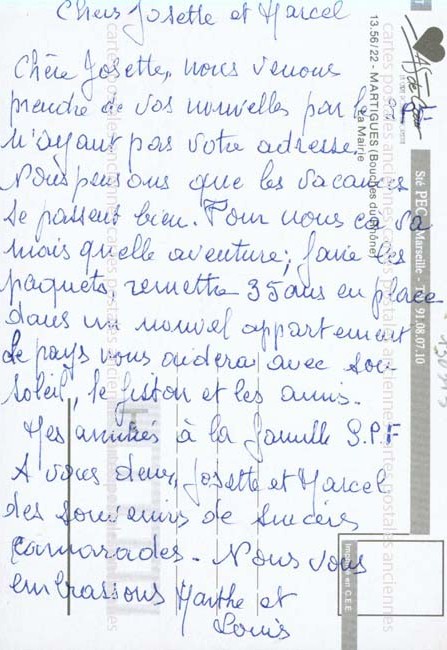 Chers Josette et Marcel
Chère Josette, nous venons
prendre de vos nouvelles par le S.P.F
n'ayant pas votre adresse.
Nous pensons que les vacances
se passent bien. Pour nous ça va
mais quelle aventure, faire les
paquets, remettre 35 ans en place
dans un nouvel appartement
Le pays nous aidera avec son
soleil, le fiston et les amis.
Mes amitiés à la famille S.P.F
A vous deux, Josette et Marcel
des souvenirs de sincères
camarades. Nous vous
embrassons Marthe et
Louis
13.56/22 - MARTIGUES (Bouches du Rhône)
La Mairie
As de Cœur
Sté PEC - Marseille - Tél. 91.08.07.10
cartes postales anciennes
cartes postales anciennes
en C.E.E.